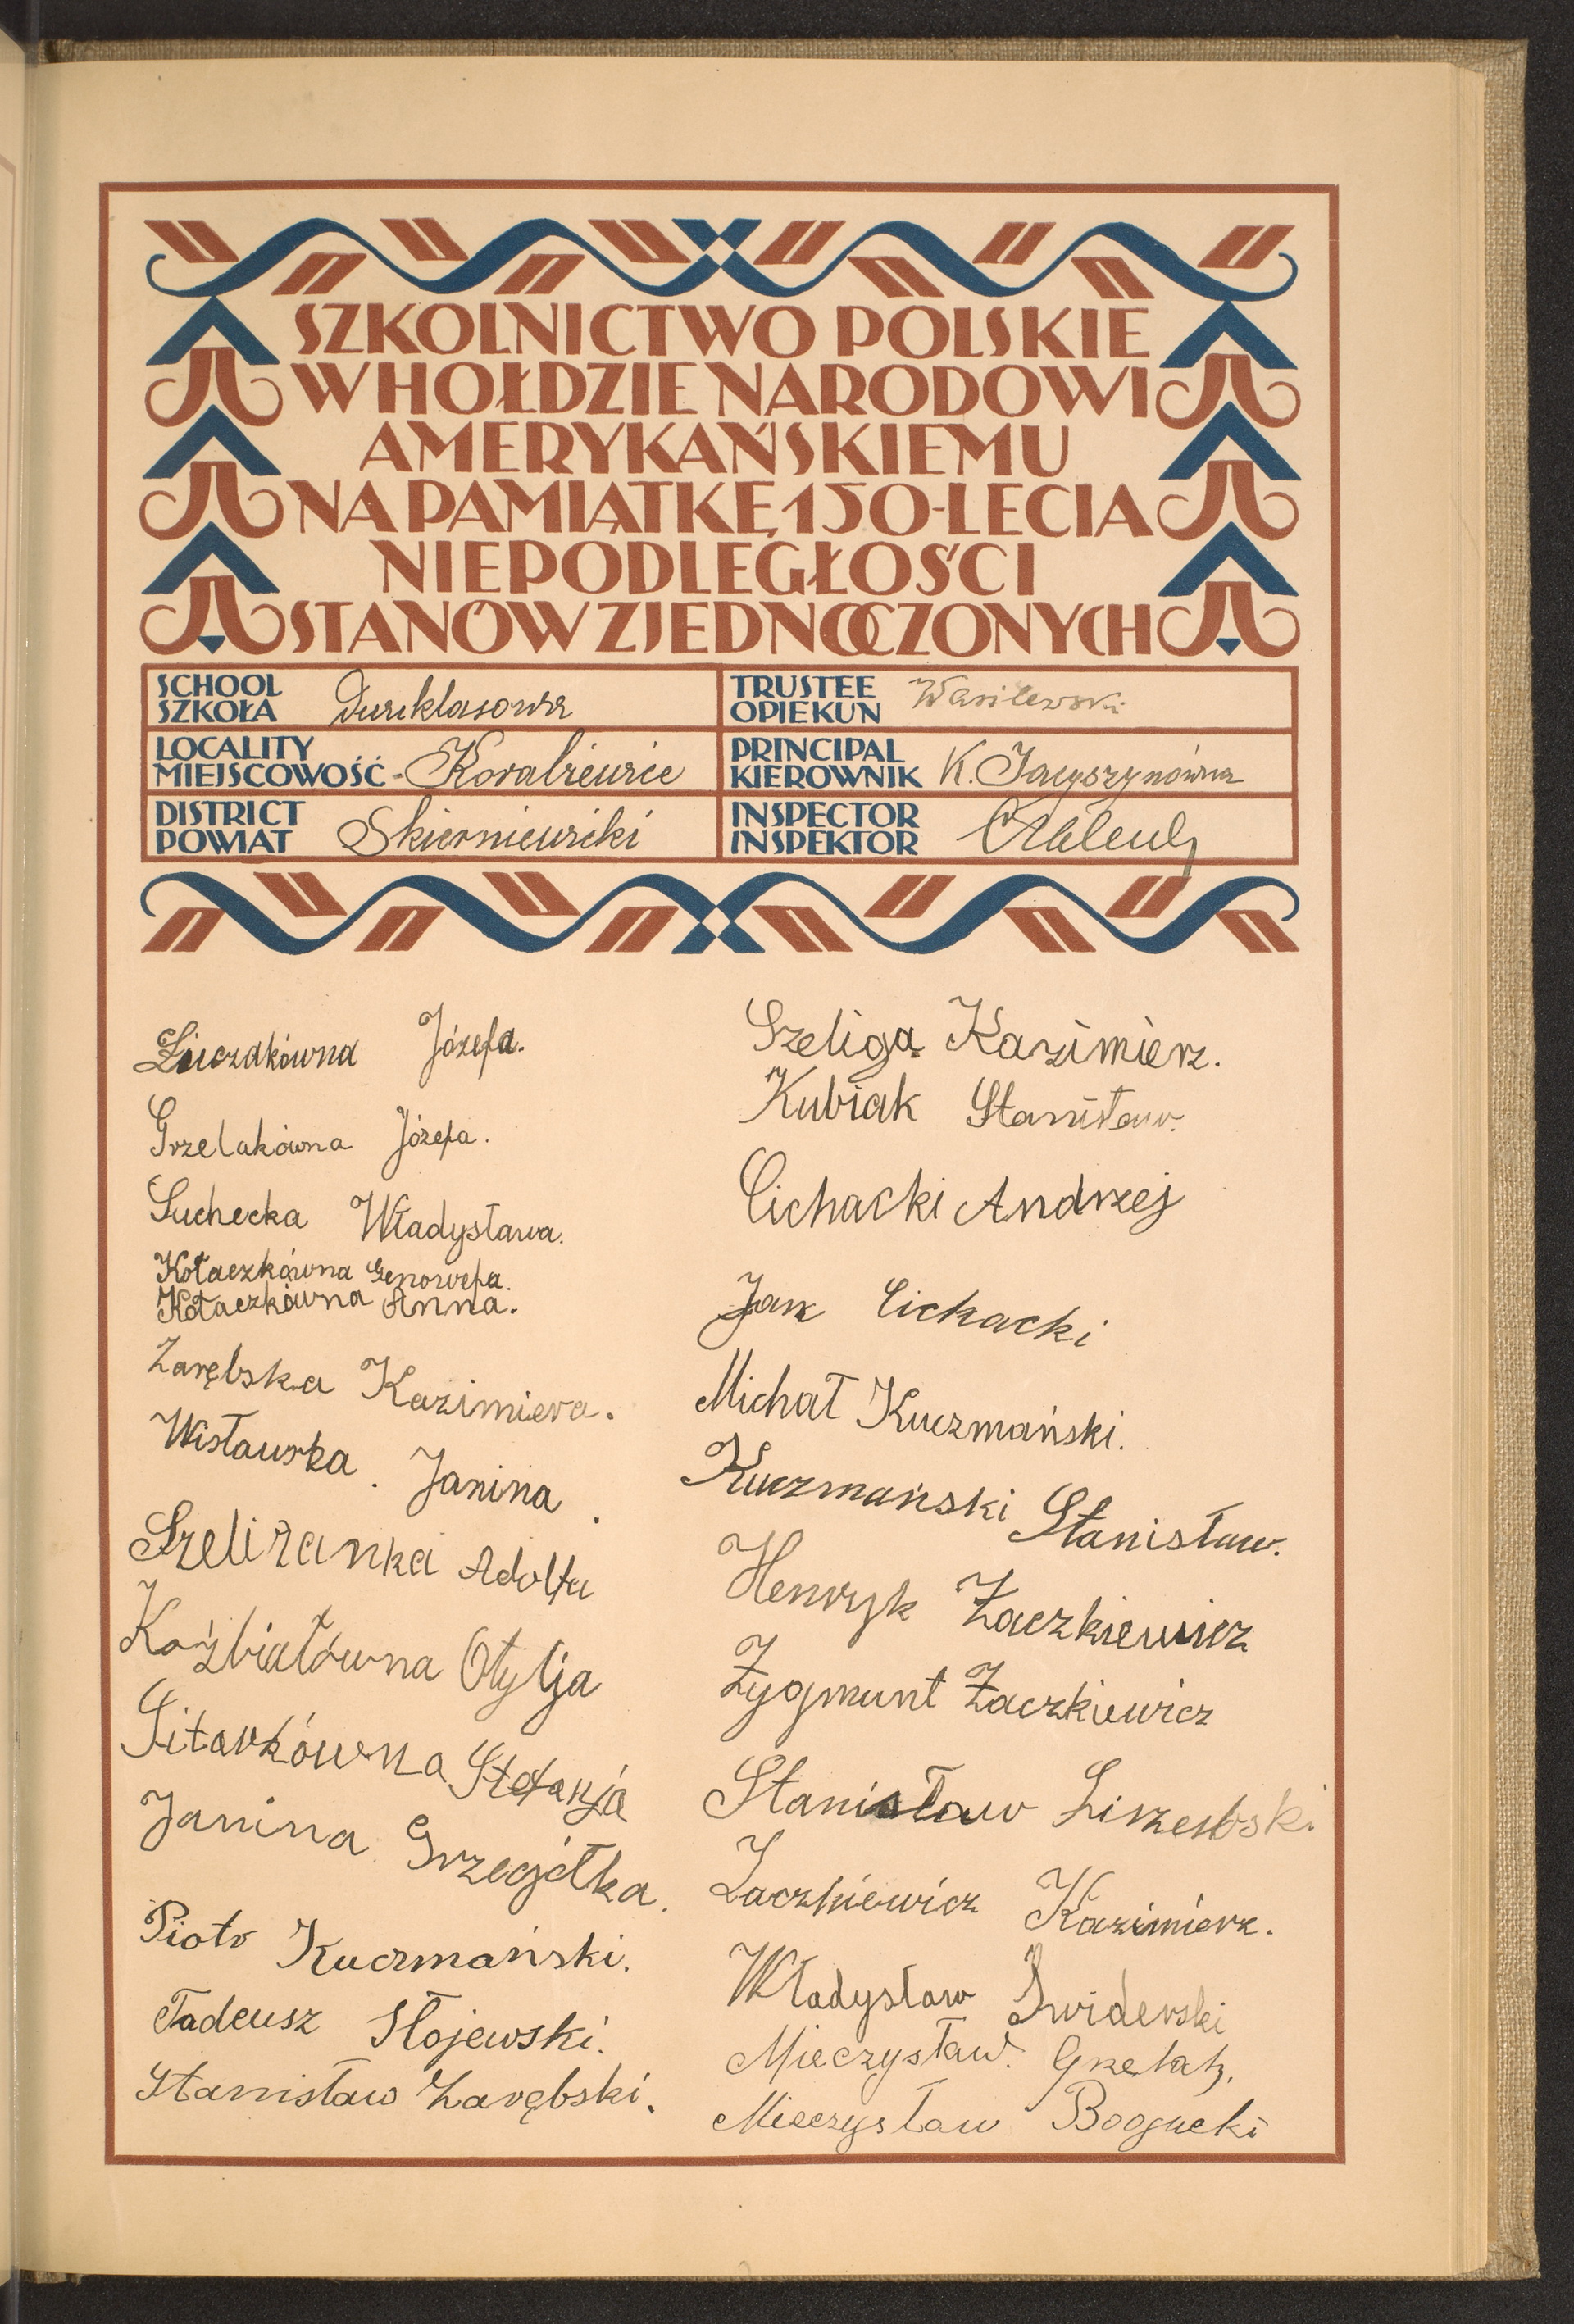 SZKOLNICTWO POLSKIE
W HOŁDZIE NARODOWI
AMERYKAŃSKIEMU
NA PAMIĄTKĘ 150-LECIA
NIEPODLEGŁOŚCI
STANÓW ZJEDNOCZONYCH
SCHOOL
SZKOŁA Dwuklasowa
TRUSTEE
OPIEKUN Wasilewski
LOCALITY
MIEJSCOWOŚĆ - Kovabiewice
PRINCIPAL
KIEROWNIK K. Jacyszynówna
DISTRICT
POWIAT Skierniewicki
INSPECTOR
INSPEKTOR
Józefa.
Grzelakówna Józefa.
Suchecka Władysława.
Kołaczkówna Genowefa.
Kołaczkówna Anna.
Zarębska Kazimiera.
Wisławska. Janina.
Szeliżanka Adolfa
Koźbiałówna Otylja
Sitarkówna Stefanja
Janina Grzegółka.
Piotr Kuczmański.
Tadeusz Słojewski.
Stanisław Zarębski.
Szeliga Kazimierz.
Kubiak Stanisław.
Cichacki Andrzej
Jan Cichacki
Michał Kuczmański.
Kuczmański Stanisław.
Henryk Żaczkiewicz
Zygmunt Żaczkiewicz
Stanisław Liszewski
Zaczkiewicz Kazimierz.
Władysław Swiderski
Mieczysław. Grzelak.
Mieczysław Boogucki